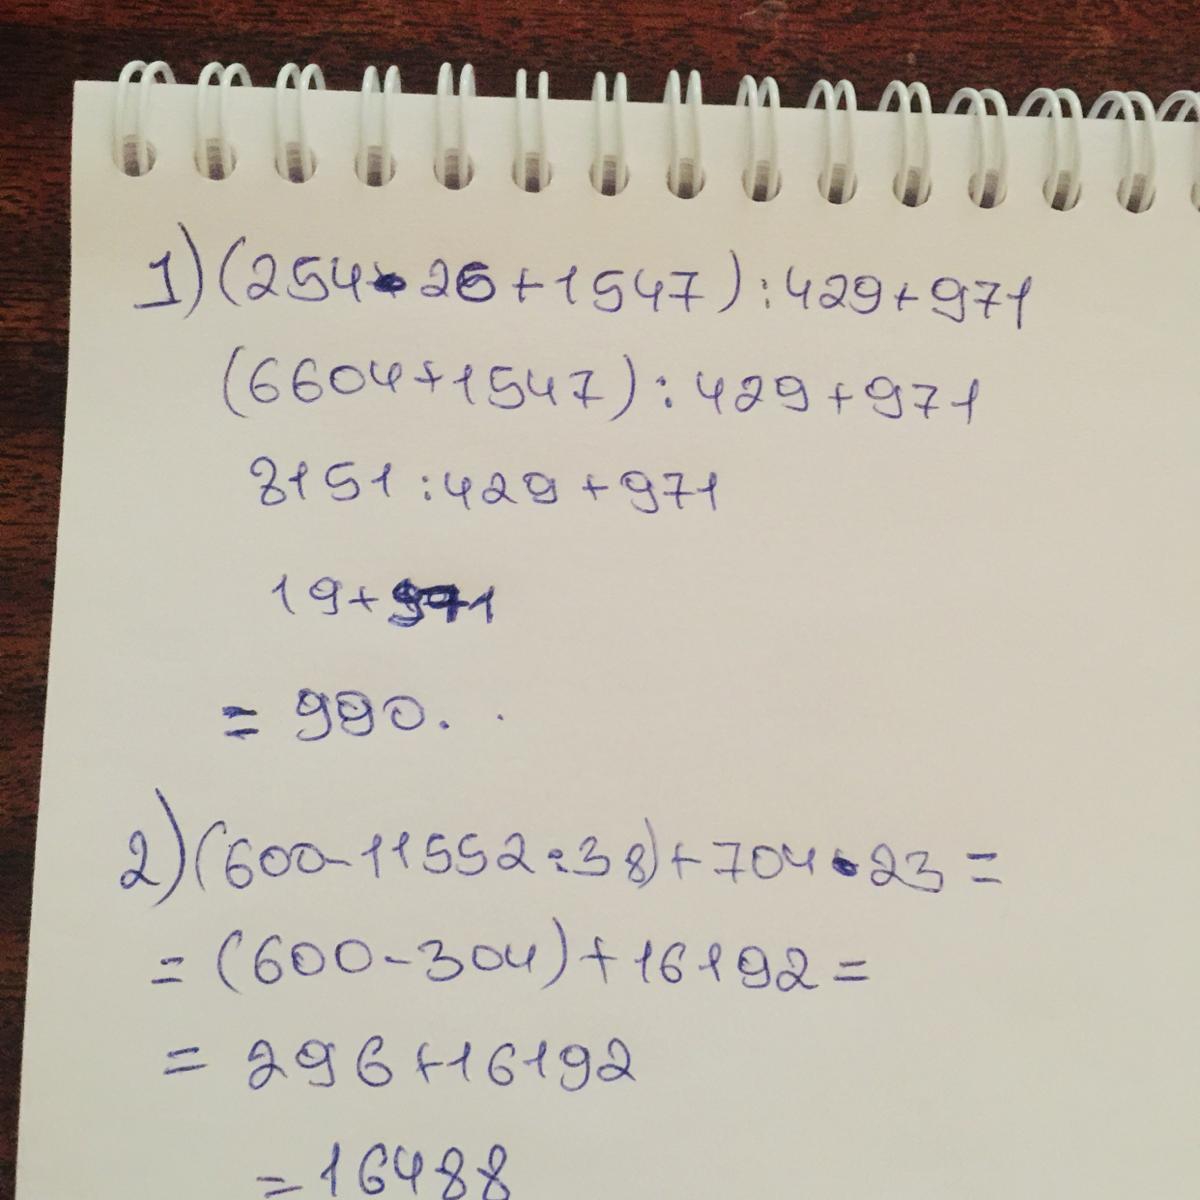 1) (254 • 26 + 1547) : 429 + 971
(6604 + 1547) : 429 + 971
8151 : 429 + 971
19 + 971
= 990.
2) (600 - 11552 : 38) + 704 • 23 =
= (600 - 304) + 16192 =
= 296 + 16192
= 16488